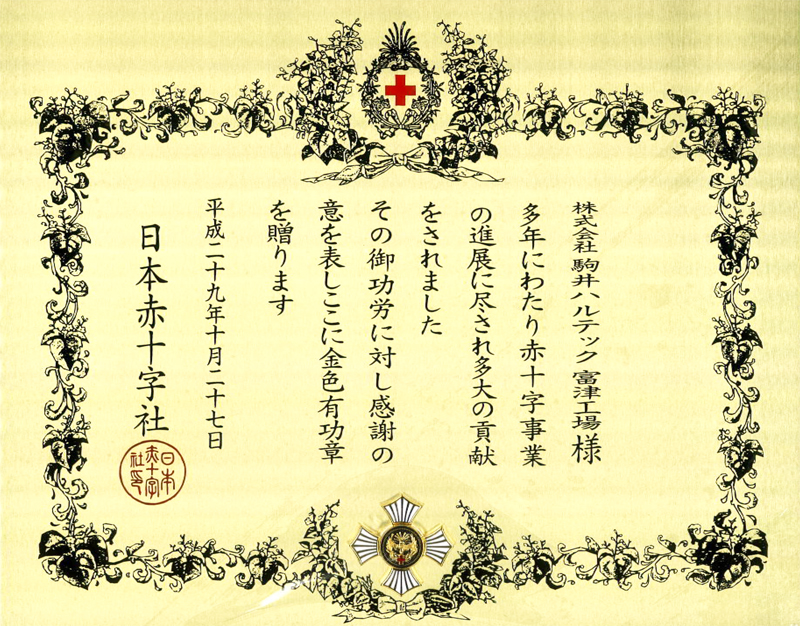 株式会社 駒井ハルテック 富津工場 様
多年にわたり赤十字事業
の進展に尽され多大の貢献
をされました
その御功労に対し感謝の
意を表しここに金色有功章
を贈ります
平成二十九年十月二十七日
日本赤十字社
日本
赤十字
社印